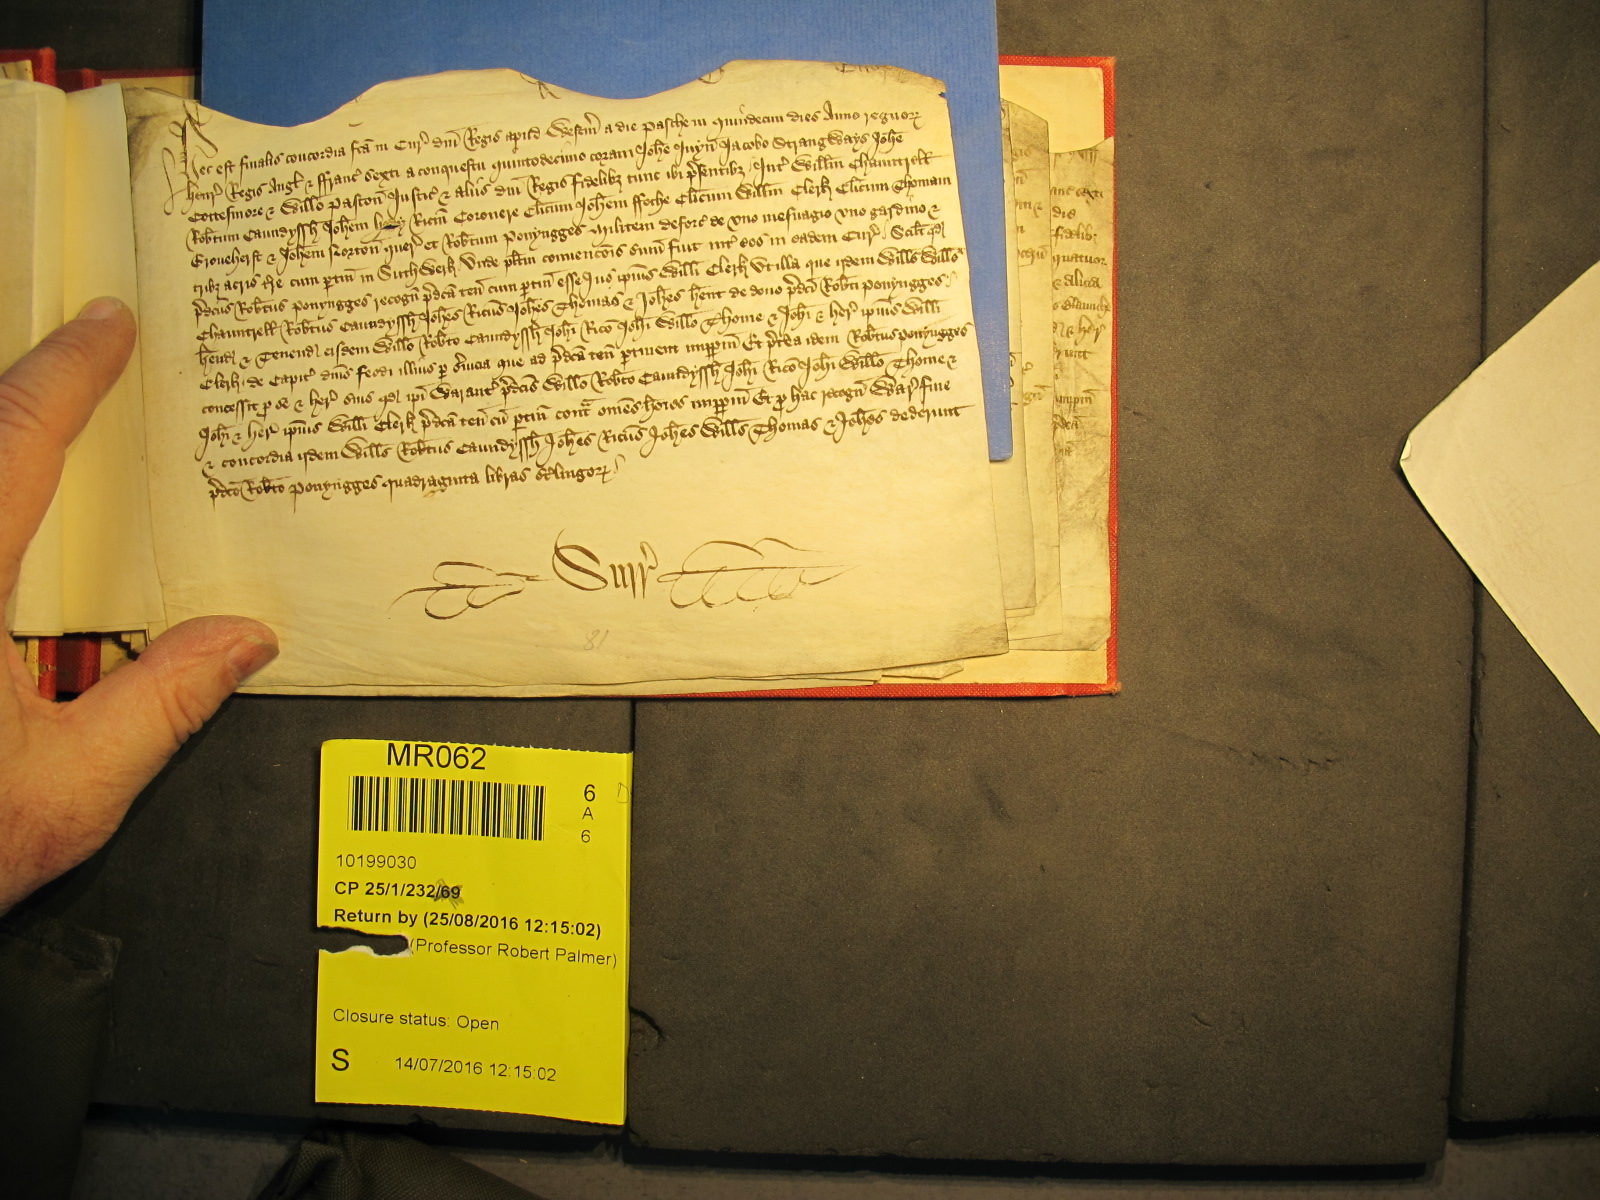 Hec est finalis concordia fcā in Cur' dn̄i Regis apud Westm̄ a die Pasche in quindecim dies Anno regnor͛
Henr' Regis Angl' & Franc' sexti a conquestu quintodecimo coram Joh̄e Juyn Jacobo Strangways Joh̄e
Cottesmore & Will̄o Paston Justic' & aliis dn̄i Regis fidelib͛ tunc ibi p̄sentib͛ Int' Will̄m Chauntrell
Rob̄tum Caundyssh Joh̄em Ric̄m Coronere Cl̄icum Joh̄em ffoche Cl̄icum Will̄m Clerk Cl̄icum Thomam
Croueherst & Joh̄em Norton quer' et Rob̄tum Ponyngges Militem deforc' de uno mesuagio uno gardino &
trib͛ acris t̄re cum p̄tin̄ in Suthwerk Unde pl̄itum convenc̄ois sum̄ fuit int' eos in eadem Cur' Scil't qd̄
p̄d̄cus Rob̄tus Ponyngges recogn̄ p̄d̄ca ten̄ cum p̄tin̄ esse Jus ip̄ius Will̄i Clerk ut illa que idem Will̄s Will̄s
Chauntrell Rob̄tus Caundyssh Joh̄es Ric̄us Joh̄es Thomas & Joh̄es h̄ent de dono p̄d̄ci Rob̄ti Ponyngges
h̄end' & Tenend' eisdem Will̄o Rob̄to Caundyssh Joh̄i Ric̄o Joh̄i Will̄o Thome & Joh̄i & her' ip̄ius Will̄i
Clerk de Capit' dn̄is feodi illius p̄ s̄vicia que ad p̄d̄ca ten̄ p̄tinent imp̄p̄m Et p̄t̄ea idem Rob̄tus Ponyngges
concessit p̄ se & her' suis qd̄ ip̄i Warant' p̄d̄cis Will̄o Rob̄to Caundyssh Joh̄i Ric̄o Joh̄i Will̄o Thome &
Joh̄i & her' ip̄ius Will̄i Clerk p̄d̄ca ten̄ cū p̄tin̄ cont̄ om̄es ho̅ies imp̄p̄m Et p̄ hac recogn̄ War' fine
& concordia idem Will̄s Rob̄tus Caundyssh Joh̄es Ric̄us Joh̄es Will̄s Thomas & Joh̄es dederunt
p̄d̄co Rob̄to Ponyngges quadraginta libras st̄lingor͛
Surr'
81
MR062
6
A
6
10199030
CP 25/1/232/69
Return by (25/08/2016 12:15:02)
(Professor Robert Palmer)
Closure status: Open
S 14/07/2016 12:15:02